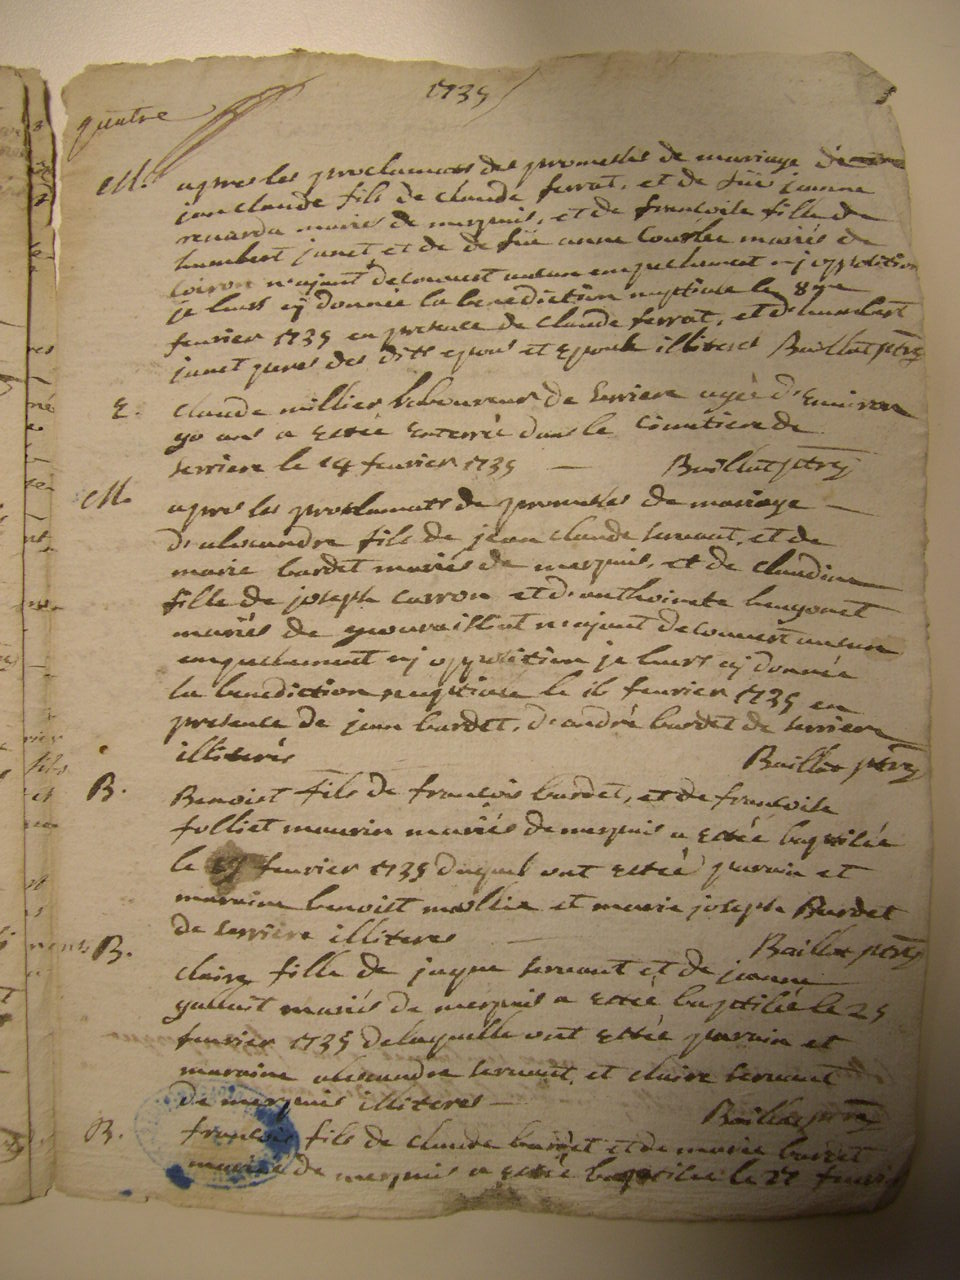 1735
quatre
M. apres les proclamats des promesses de mariage de
jan claude fils de claude ferrat, et de füe jeanne
renarda mariés de merpuis, et de francoise fille de
humbert junet et de de füe anne mariés de
coiron n'ajant decouvert aucun empechement nj opposition
je leurs aÿ donnée la benediction nuptiale le 8me
fevrier 1735 en presence de claude ferrat, et d'humbert
junet peres des dits epous et epouse illiteres Baillat ptre
E. claude millier laboureur de serriere agée d'environ
90 ans a estée enterrée dans le cimetiere de
serriere le 14 fevrier 1735 Baillat ptre
M. apres les proclamats de promesses de mariage
d'alexandre fils de jean claude servant, et de
marie bardet mariés de merpuis, et de claudine
fille de joseph carron et d'anthoinete
mariés de n'ajant decouvert aucun
empechement nj opposition je leurs aÿ donnée
la benediction nuptiale le 16 fevrier 1735 en
presence de jean bardet, d'andré bardet de serriere
illiterés Baillat ptre
B. Benoist fils de francois bardet, et de francoise
folliet maurin mariés de merpuis a estée baptisée
le fevrier 1735 duquel ont estée parain et
maraine benoist mollie et marie joseph Bardet
de serriere illiteres Baillat ptre
B. claire fille de jaque servant et de jeanne
gallait mariés de merpuis a estée baptisée le 25
fevrier 1735 de laquelle ont estée parain et
maraine alexandre servant, et claire servant
de merpuis illiteres Baillat ptre
B. francois fils de claude bardet et de marie bardet
mariés de merpuis a estée baptisée le 27 fevrier